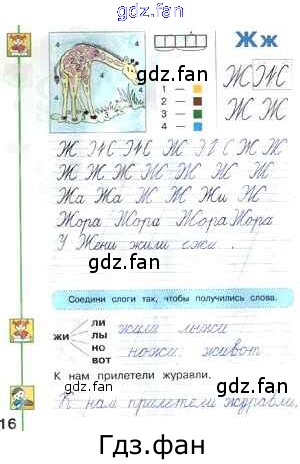 gdz.fan
Ж ж
4 4
gdz.fan
1 —
2 —
3 —
4 —
Ж Ж
gdz.fan
Ж Ж
Ж Ж Ж Ж Ж Ж Ж
gdz.fan
Ж Ж Ж Ж Ж Ж Ж Ж
Жа Жа Ж Ж Жи Ж
Жора Жора Жора Жора
У Жени жили ежи.
gdz.fan
Соедини слоги так, чтобы получились слова.
жи
ли
лы
но
вот
жили лыжи
ножи живот
gdz.fan
К нам прилетели журавли.
К нам прилетели журавли.
gdz.fan
gdz.fan
16
Гдз.фан